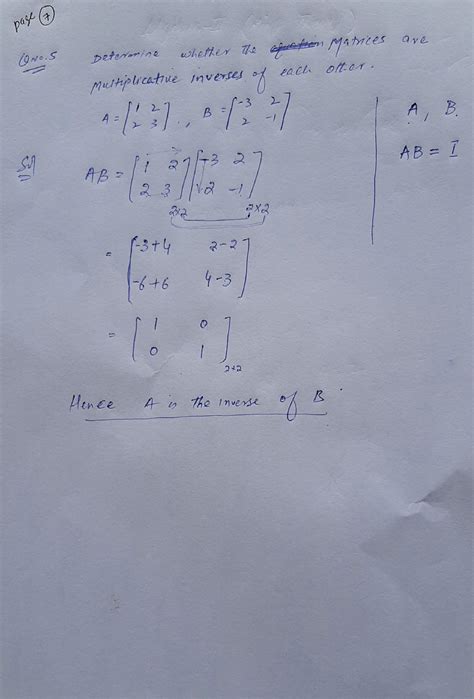 part 7
Q no. 5 Determine whether the equation Matrices are
Multiplicative inverses of each other.
A = [1 2
2 3], B = [-3 2
2 -1]
A, B
AB = I
Sol
AB = [1 2
2 3] [-3 2
2 -1]
2x2 2x2
= [-3+4 2-2
-6+6 4-3]
= [1 0
0 1] 2x2
Hence A is the inverse of B